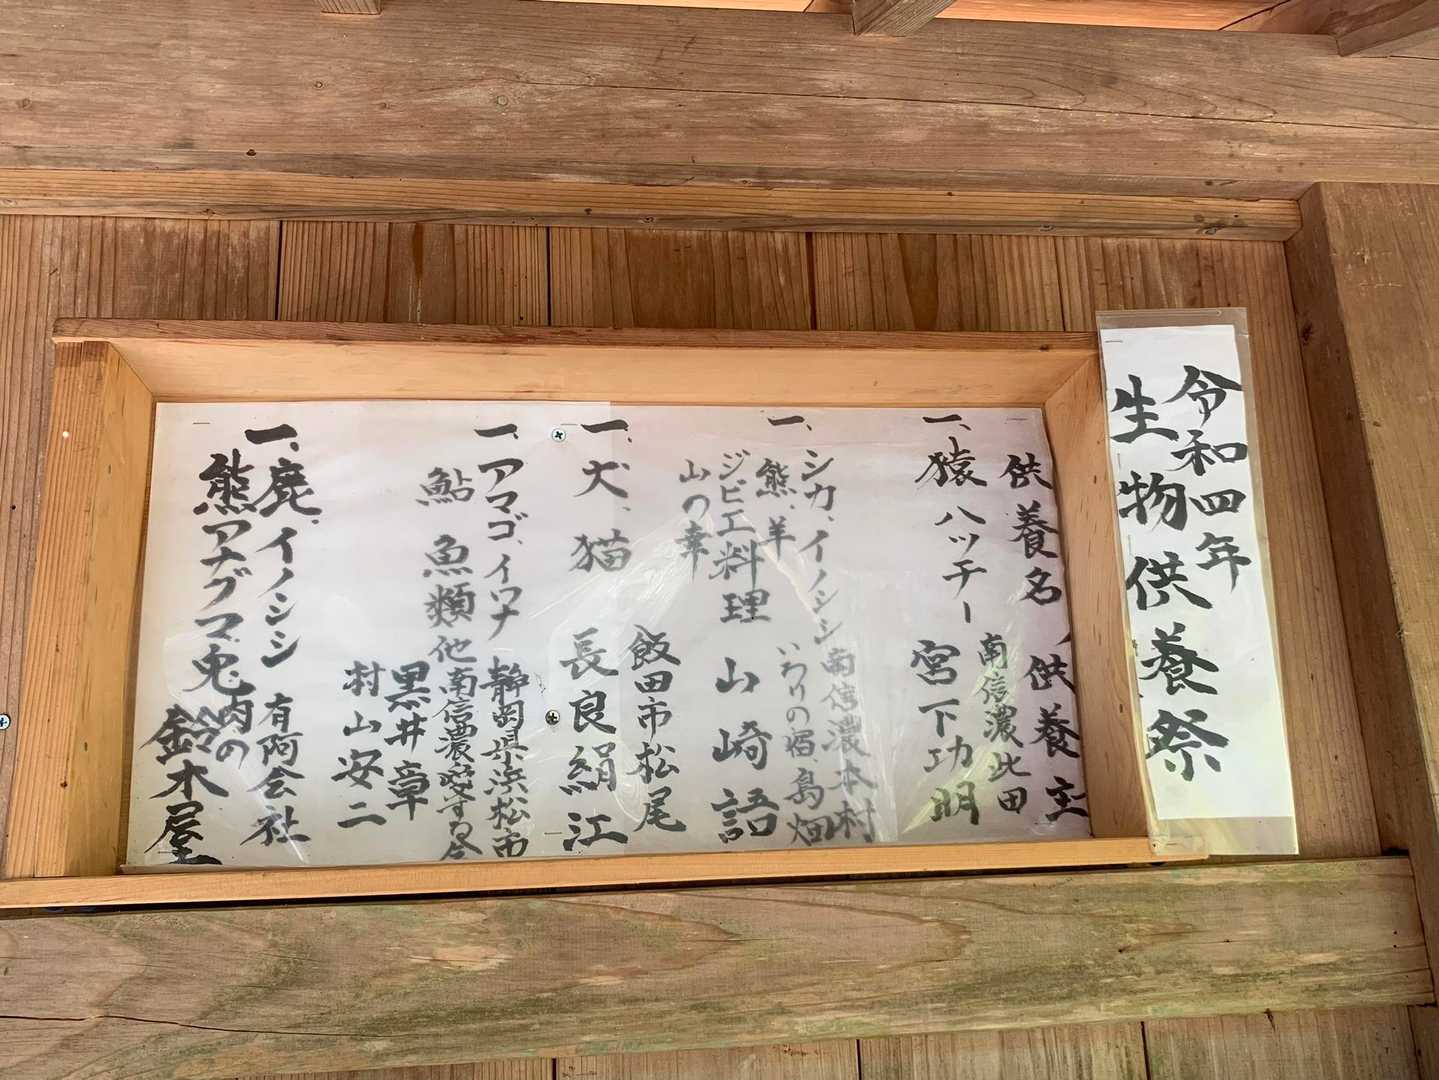 令和四年
生物供養祭
供養名/供養主
一、猿 ハッチー
南信濃此田
宮下功明
一、シカ、イノシシ
熊、羊
ジビエ料理
山の幸
南信濃本村
いろりの宿、島畑
山崎語
一、犬、猫
飯田市松尾
長良絹江
一、アマゴ、イワナ
鮎 魚類他
静岡県浜松市
南信濃愛する会
黒井章
村山安二
一、鹿、イノシシ
熊アナグマ兎
有阿会社
肉の
鈴木屋